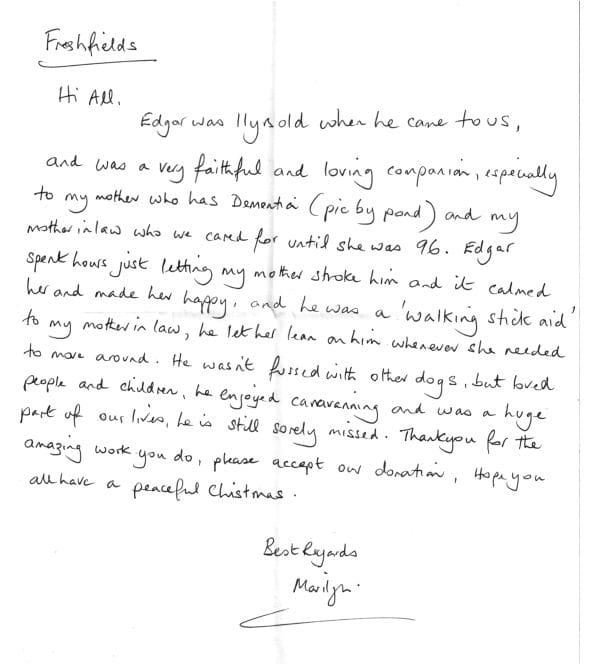 Freshfields
Hi All,
Edgar was 11yrs old when he came to us,
and was a very faithful and loving companion, especially
to my mother who has Dementia (pic by pond) and my
mother in law who we cared for until she was 96. Edgar
spent hours just letting my mother stroke him and it calmed
her and made her happy, and he was a 'walking stick aid'
to my mother in law, he let her lean on him whenever she needed
to move around. He wasn't fussed with other dogs, but loved
people and children, he enjoyed caravanning and was a huge
part of our lives, he is still sorely missed. Thankyou for the
amazing work you do, please accept our donation, Hope you
all have a peaceful Christmas.
Best Regards
Marilyn.